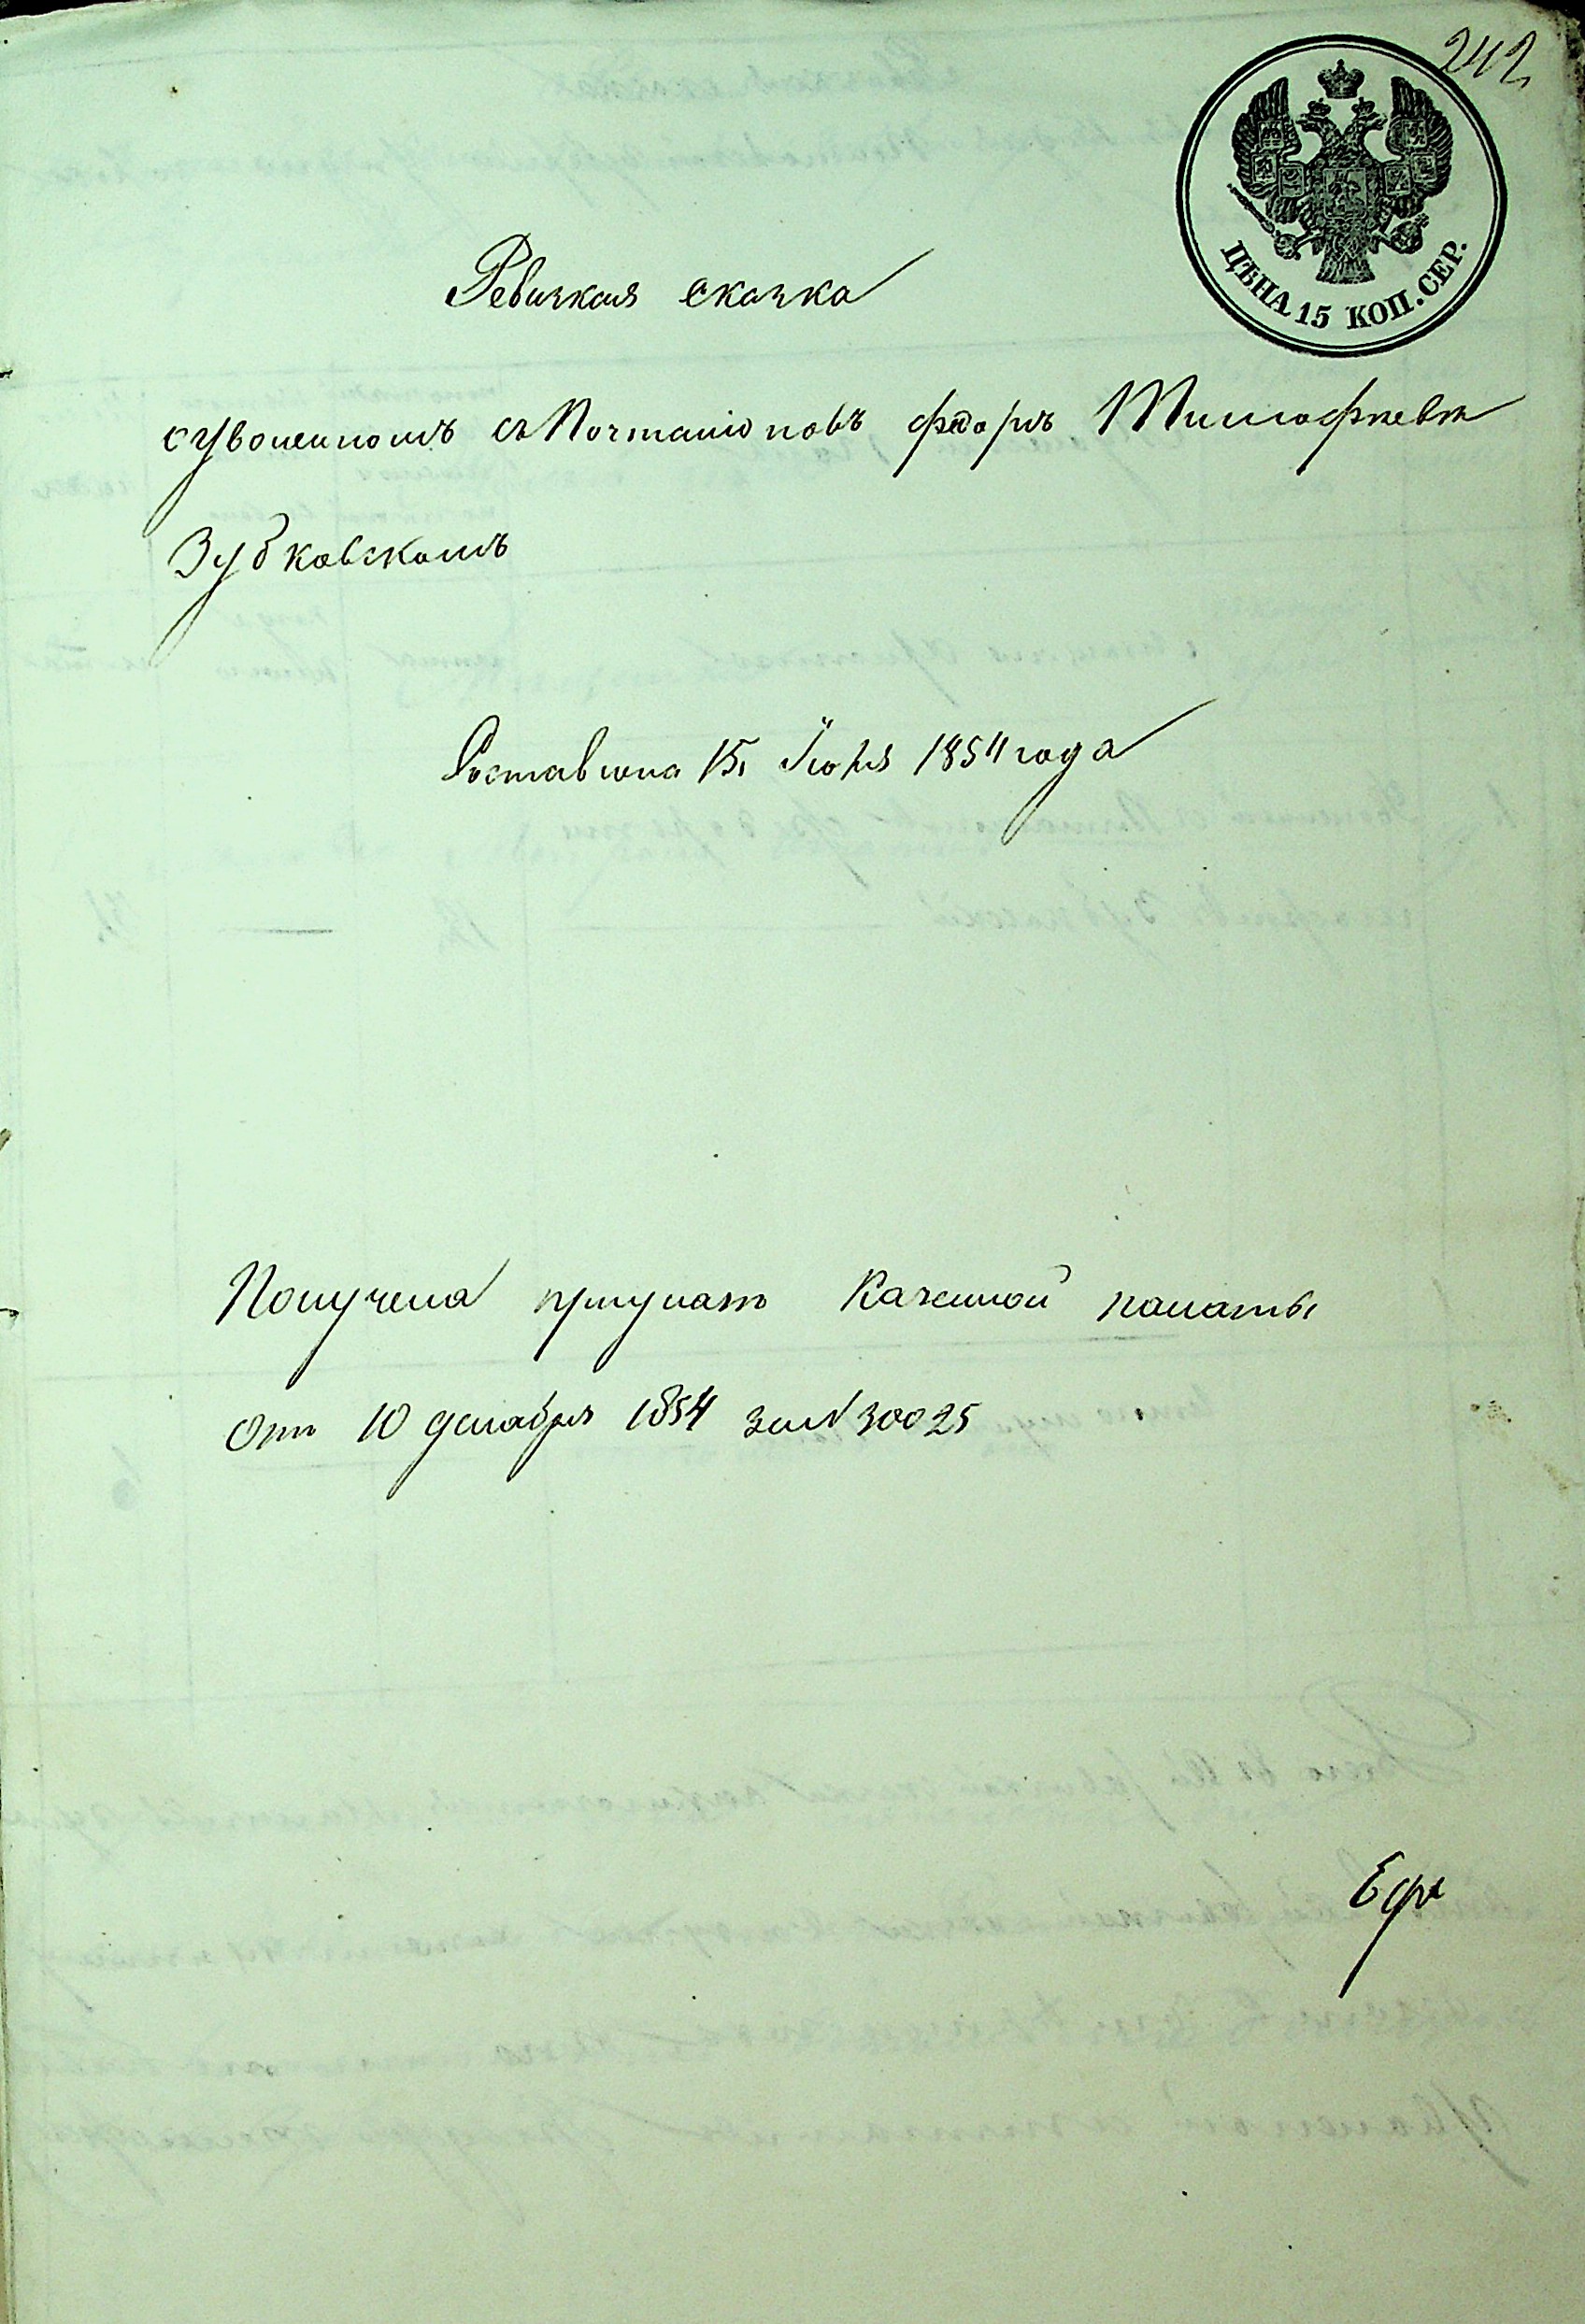 242
ЦѢНА 15 КОП. СЕР.
Ревизкая сказка
оуволенномъ съ Почталіоновъ Федорѣ Тимофѣевѣ
Зубковскомъ
Составлена 15 Іюня 1854 года
Получена Казенной палаты
Отъ 10 декабря 1854 за N 30025